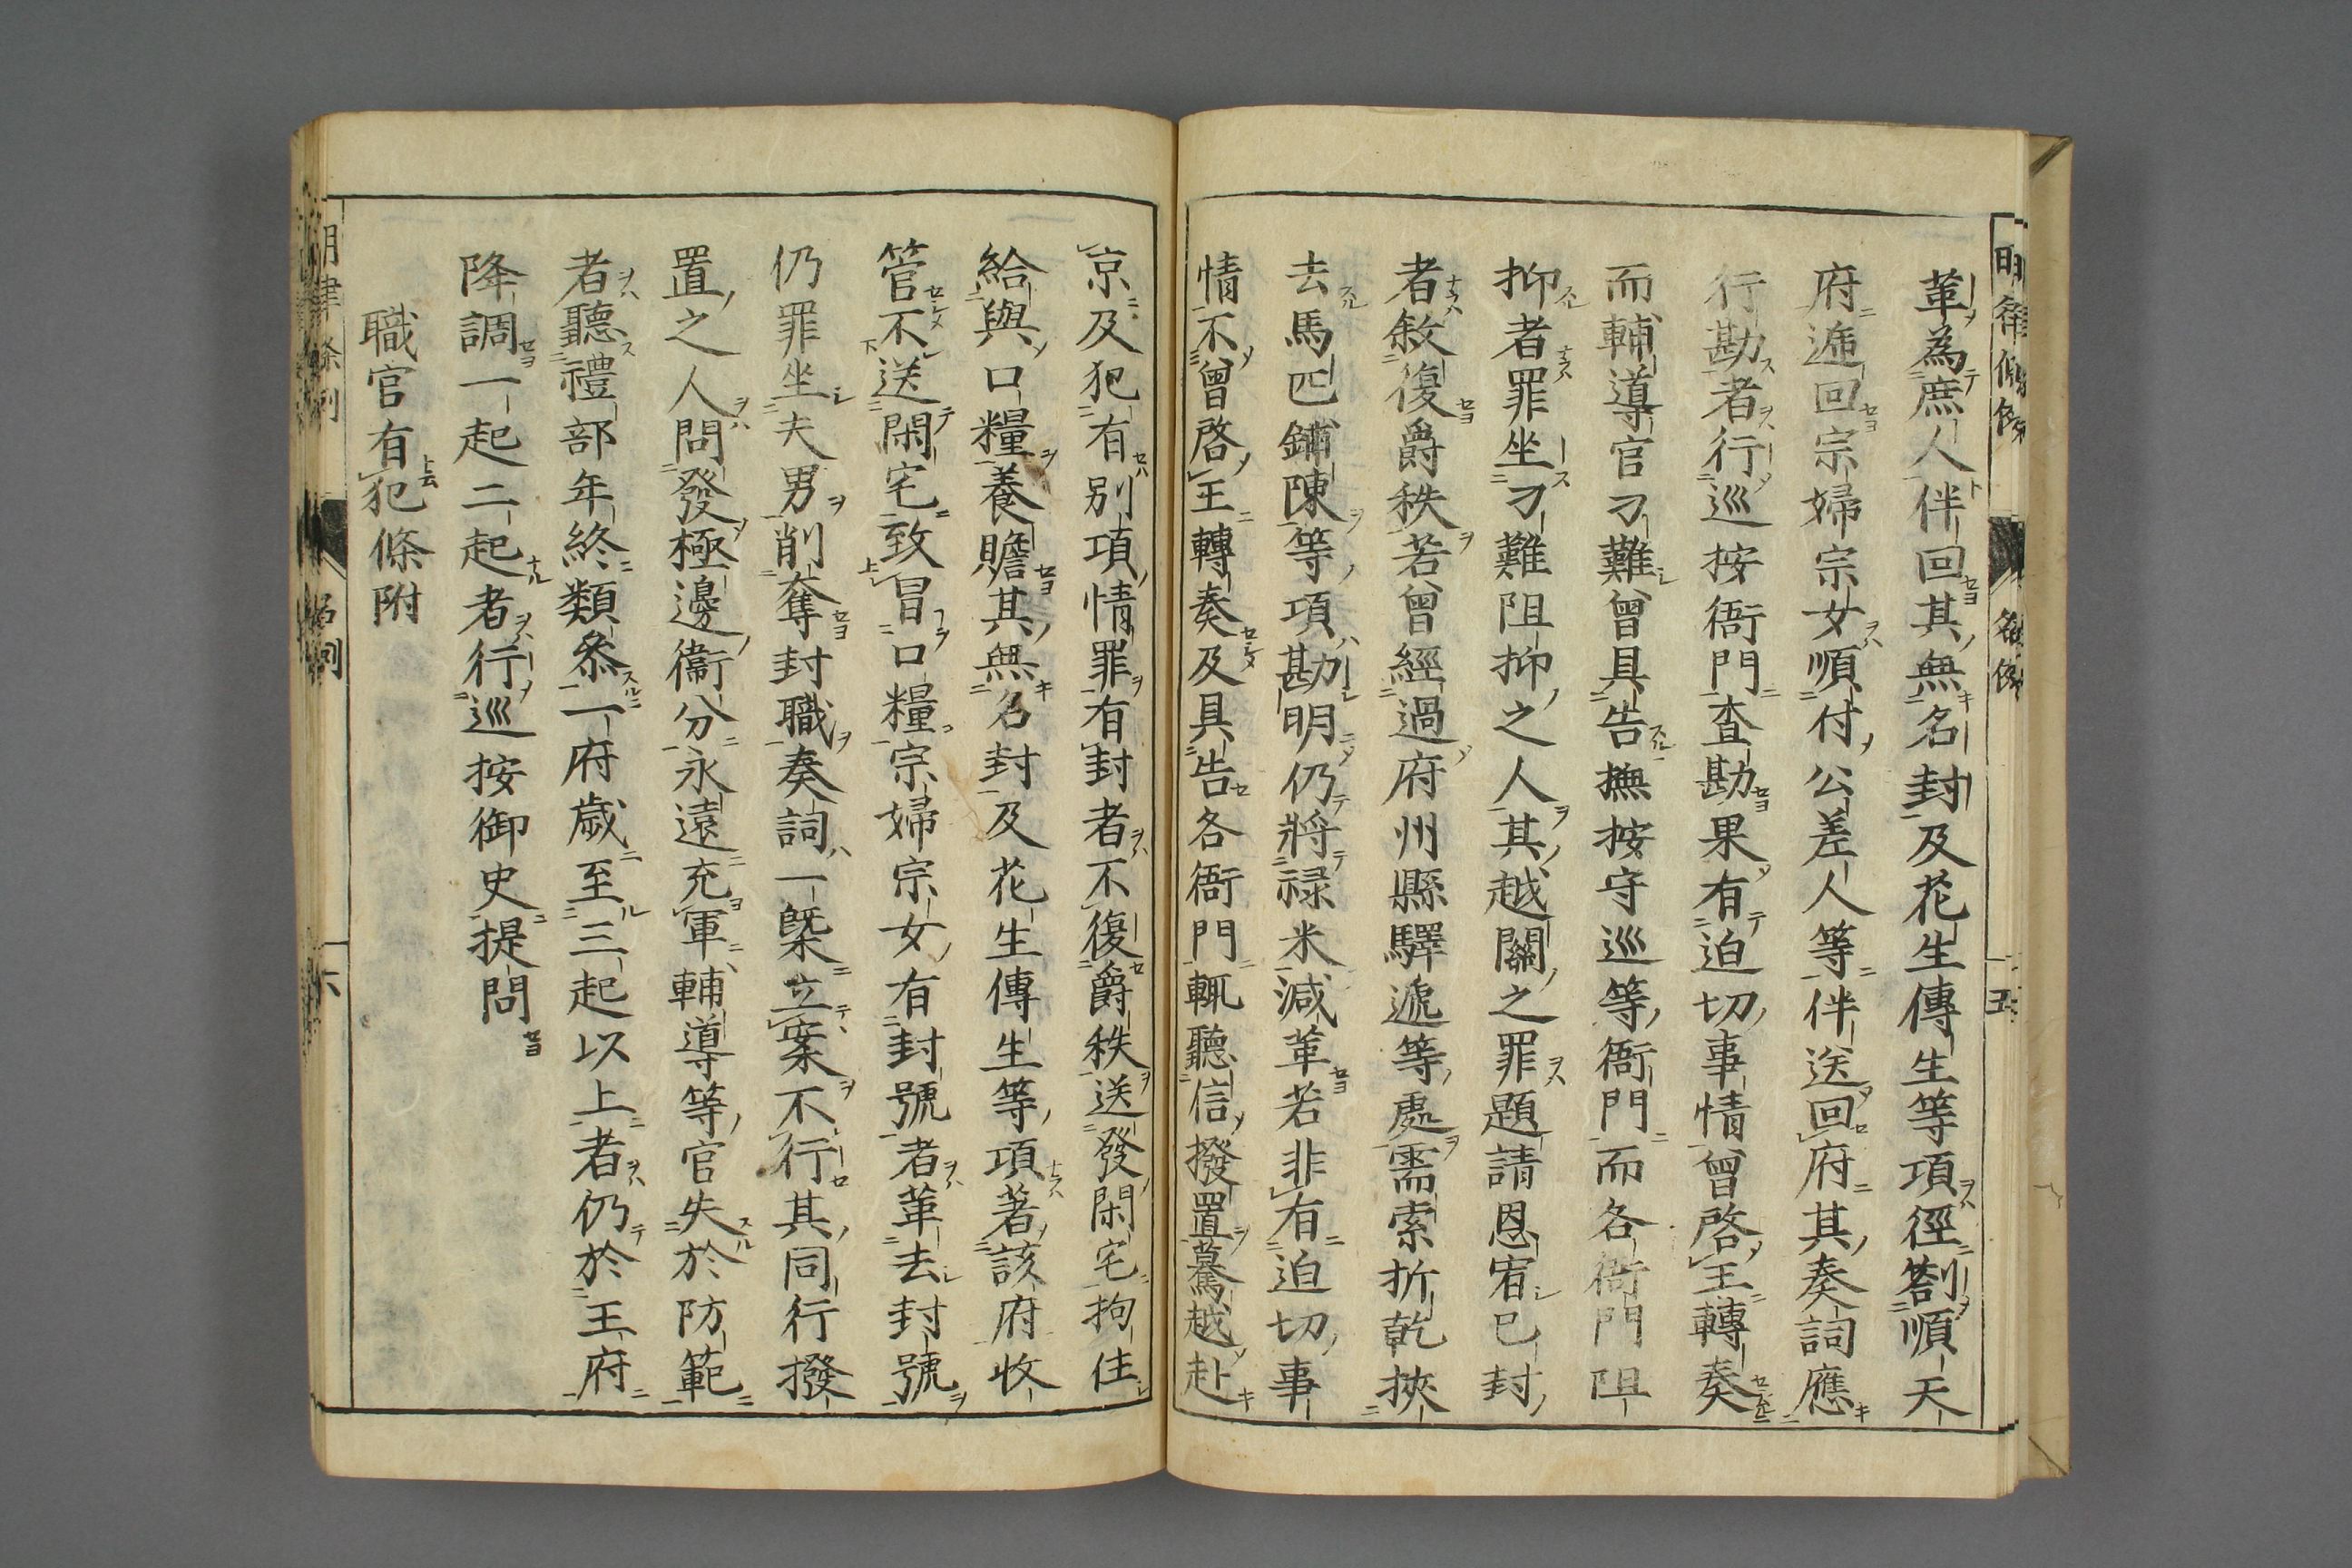 革為庶人伴回其無名封及花生傳生等項徑劄順天
府遞回宗婦宗女順付公差人等伴送回府其奏詞應
行勘者行巡按衙門查勘果有迫切事情曾啓王轉奏
而輔導官刁難曾具告撫按守巡等衙門而各衙門阻
抑者罪坐刁難阻抑之人其越關之罪題請恩宥已封
者敘復爵秩若曾經過府州縣驛遞等處需索折乾挾
去馬匹鋪陳等項勘明仍將祿米減革若非有迫切事
情不曾啓王轉奏及具告各衙門輒聽信撥置驀越赴
京及犯有別項情罪有封者不復爵秩送發閑宅拘住
給與口糧養贍其無名封及花生傳生等項著該府收
管不送閑宅致冒口糧宗婦宗女有封號者革去封號
仍罪坐夫男削奪封職奏詞一槩立案不行其同行撥
置之人問發極邊衞分永遠充軍輔導等官失於防範
者聽禮部年終類叅一府歲至三起以上者仍於王府
降調一起二起者行巡按御史提問
職官有犯條附
明律條例 名例 六